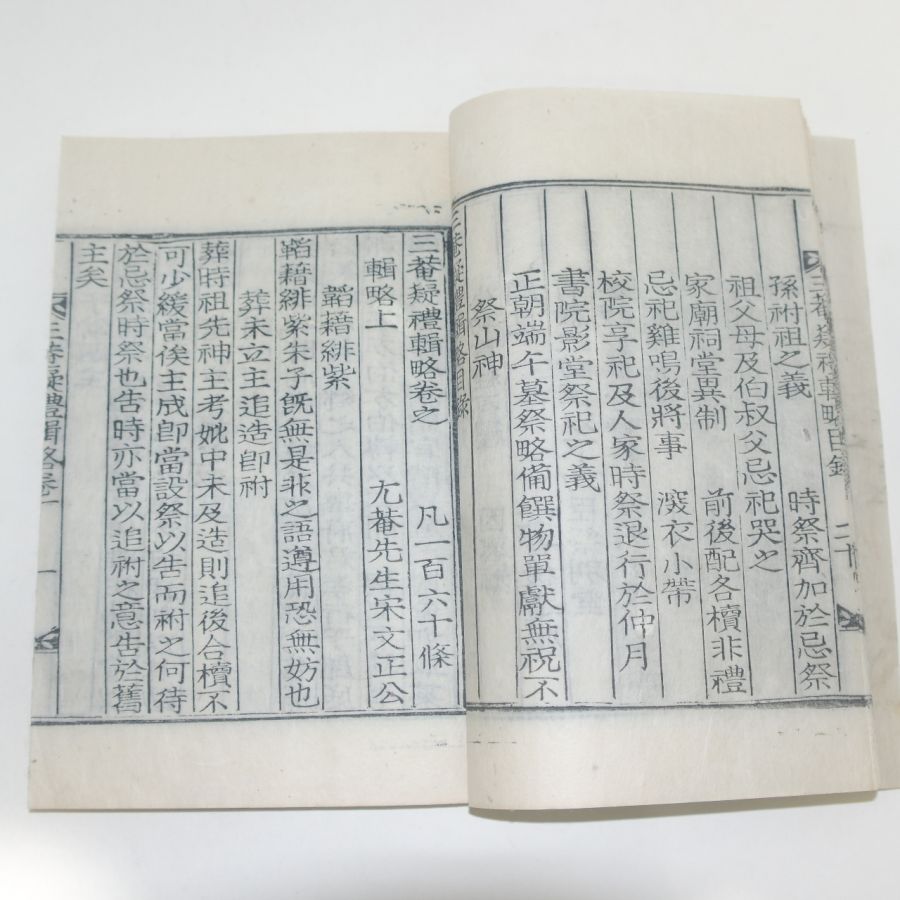 孫祔祖之義 時祭齊加於忌祭
祖父母及伯叔父忌祀哭之
家廟祠堂異制 前後配各櫝非禮
忌祀雞鳴後將事 深衣小帶
校院享祀及人家時祭退行於仲月
書院影堂祭祀之義
正朝端午墓祭略備饌物單獻無祝不
祭山神
三菴疑禮輯略目錄
三菴疑禮輯略卷之 凡一百六十條
輯略上 尤菴先生宋文正公
韜藉緋紫
韜藉緋紫朱子旣無是非之語遵用恐無妨也
葬未立主追造卽祔
葬時祖先神主考妣中未及造則追後合櫝不
可少緩當俟主成卽當設祭以告而祔之何待
於忌祭時祭也告時亦當以追祔之意告於舊
主矣
三菴疑禮輯略卷一 一